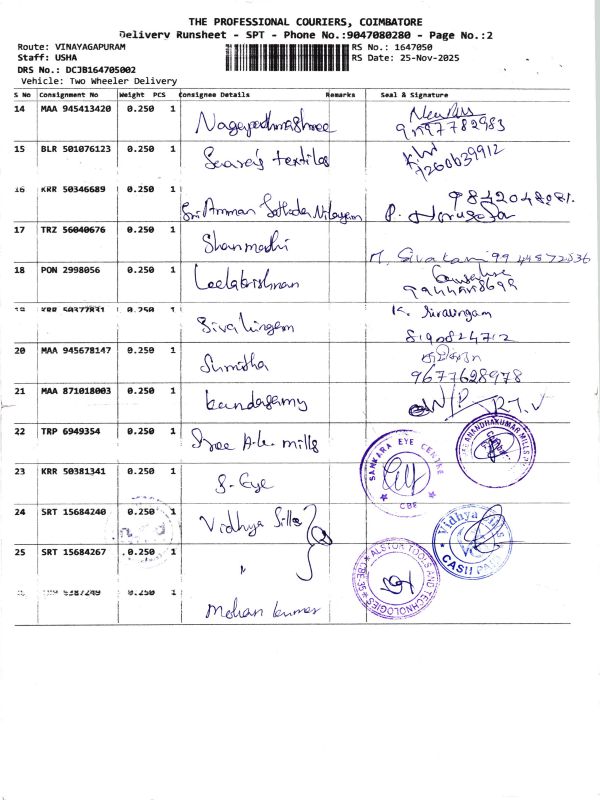 THE PROFESSIONAL COURIERS, COIMBATORE
Delivery Runsheet - SPT - Phone No.:9047080280 - Page No.:2
Route: VINAYAGAPURAM
RS No.: 1647050
Staff: USHA
RS Date: 25-Nov-2025
DRS No.: DCJB164705002
Vehicle: Two Wheeler Delivery
S No Consignment No Weight PCS Consignee Details Remarks Seal & Signature
14 MAA 945413420 0.250 1
15 BLR 501076123 0.250 1 textiles
16 KRR 50346689 0.250 1 Sri Amman 9842048081.
17 TRZ 56040676 0.250 1 Shanmadhi
18 PON 2998056 0.250 1 Leelakrishnan
19 KRR 50377831 0.250 1 Sivalingam K. Sivalingam
8190824712
20 MAA 945678147 0.250 1 Sumitha
9677628978
21 MAA 871018003 0.250 1 kandasamy
22 TRP 6949354 0.250 1 Sree A.k. mills
23 KRR 50381341 0.250 1 S-Eye SANKARA EYE CENTRE CBE
24 SRT 15684240 0.250 1 Vidhya Sills Vidhya CASH PAID
25 SRT 15684267 0.250 1 " ALSTOR TOOLS AND TECHNOLOGIES CBE-35
0.250 1 Mohan kumar